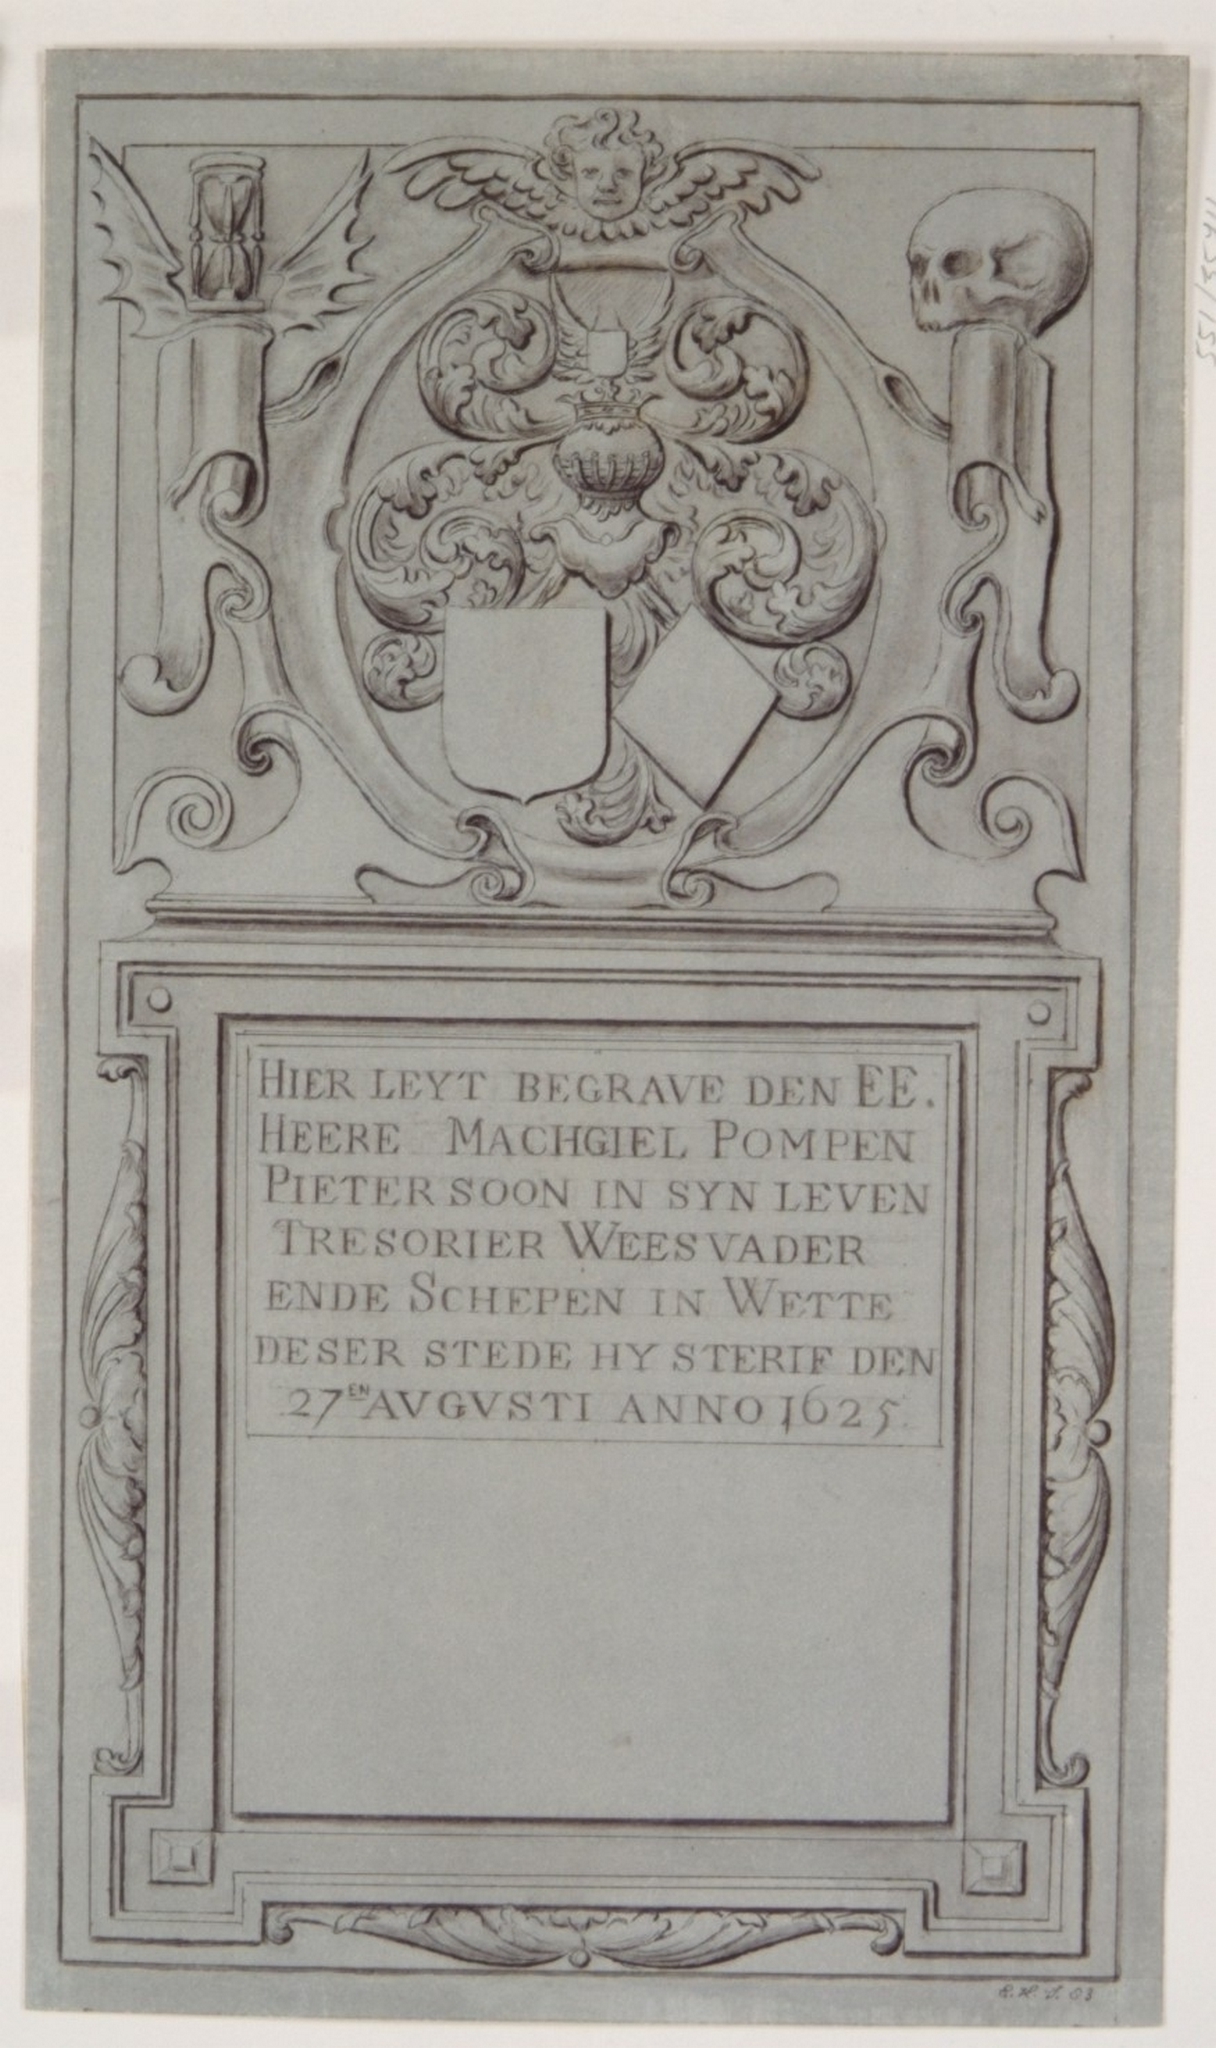 HIER LEYT BEGRAVE DEN EE.
HEERE MACHGIEL POMPEN
PIETERSOON IN SYN LEVEN
TRESORIER WEESVADER
ENDE SCHEPEN IN WETTE
DESER STEDE HY STERIF DEN
27EN AVGVSTI ANNO 1625.